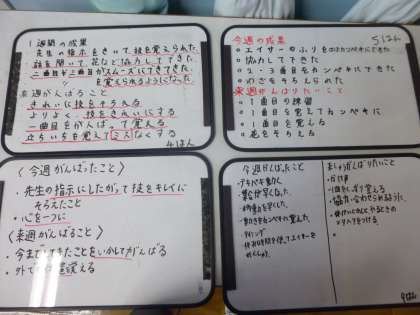 1週間の成果
先生の指示をきいて、技を覚えられた。
話を聞いて、花など協力してできた。
二曲目や三曲目がスムーズにできてきた。
を覚えられるようになった
来週がんばること
きれいに技をそろえる
よりよく、技をきれいにする
一曲目をがんばって覚える
立ちいちを覚えてミスなくする
4はん
今週の成果
5はん
エイサーのふりをほぼカンペキにできた
協力してできた
2・3番目をカンペキにできた
のどをそろえられた
来週がんばりたいこと
1曲目の練習
1曲目を覚えてカンペキに
1曲目を覚える
息をそろえる
〈今週がんばったこと〉
・先生の指示にしたがって技をキレイに
そろえたこと
・心を一つに
〈来週がんばること〉
・今までしてきたことをいかしてがんばる
・外で
覚える
今週がんばったこと
・テキパキ動く
・集合が早くなった
・動きをカンペキに覚えた
・タイミング
・休み時間を使ってエイサーを
おどった
らいしゅうがんばりたいこと
・行動
・1曲をしっかり覚える
・協力、合わせられるように